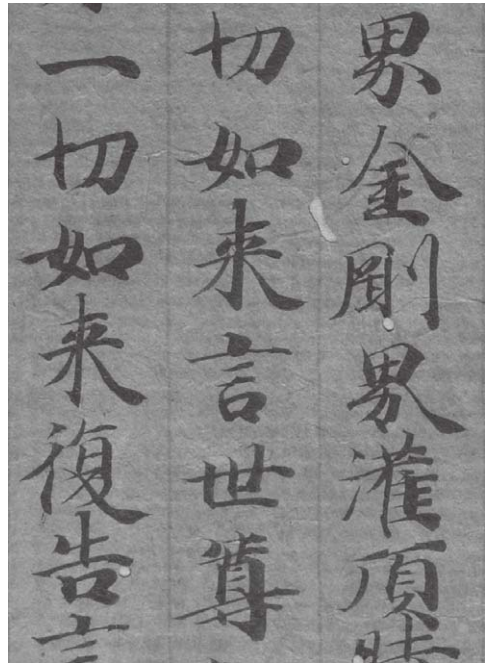 界金剛界灌頂時
切如来言世尊
一切如来復告言